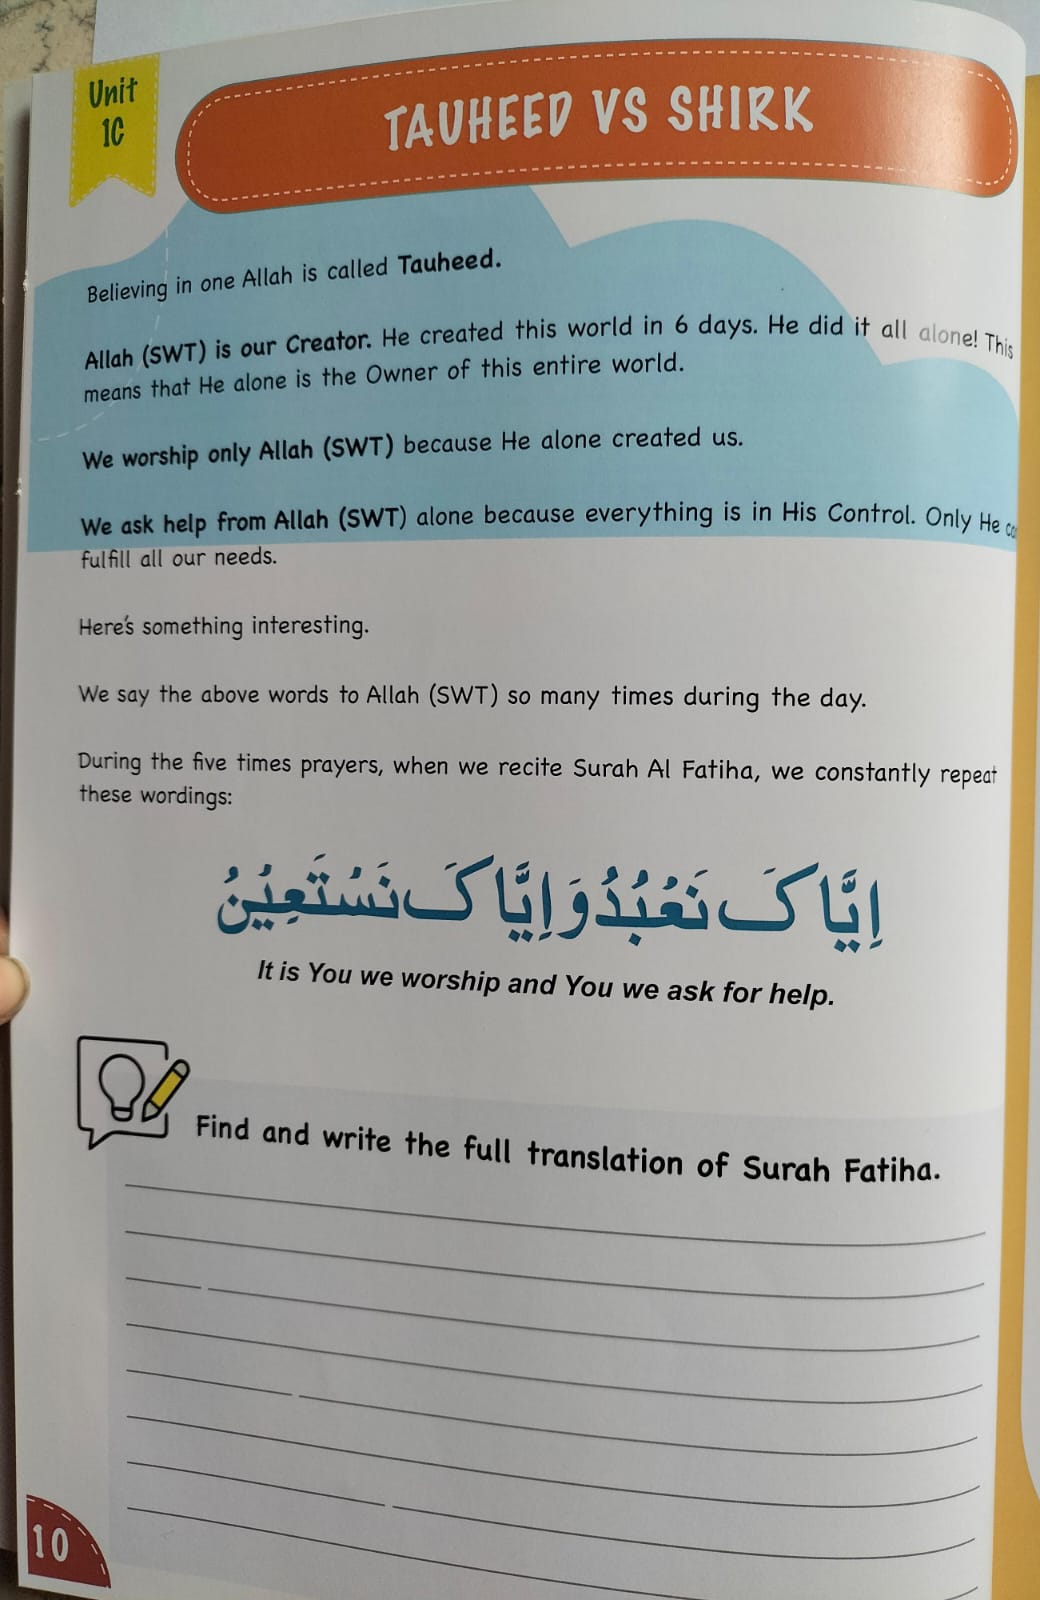 Unit
1C
TAUHEED VS SHIRK
Believing in one Allah is called Tauheed.
Allah (SWT) is our Creator. He created this world in 6 days. He did it all alone! This
means that He alone is the Owner of this entire world.
We worship only Allah (SWT) because He alone created us.
We ask help from Allah (SWT) alone because everything is in His Control. Only He
fulfill all our needs.
Here's something interesting.
We say the above words to Allah (SWT) so many times during the day.
During the five times prayers, when we recite Surah Al Fatiha, we constantly repeat
these wordings:
اِيَّاكَ نَعْبُدُ وَاِيَّاكَ نَسْتَعِيْنُ
It is You we worship and You we ask for help.
Find and write the full translation of Surah Fatiha.
10